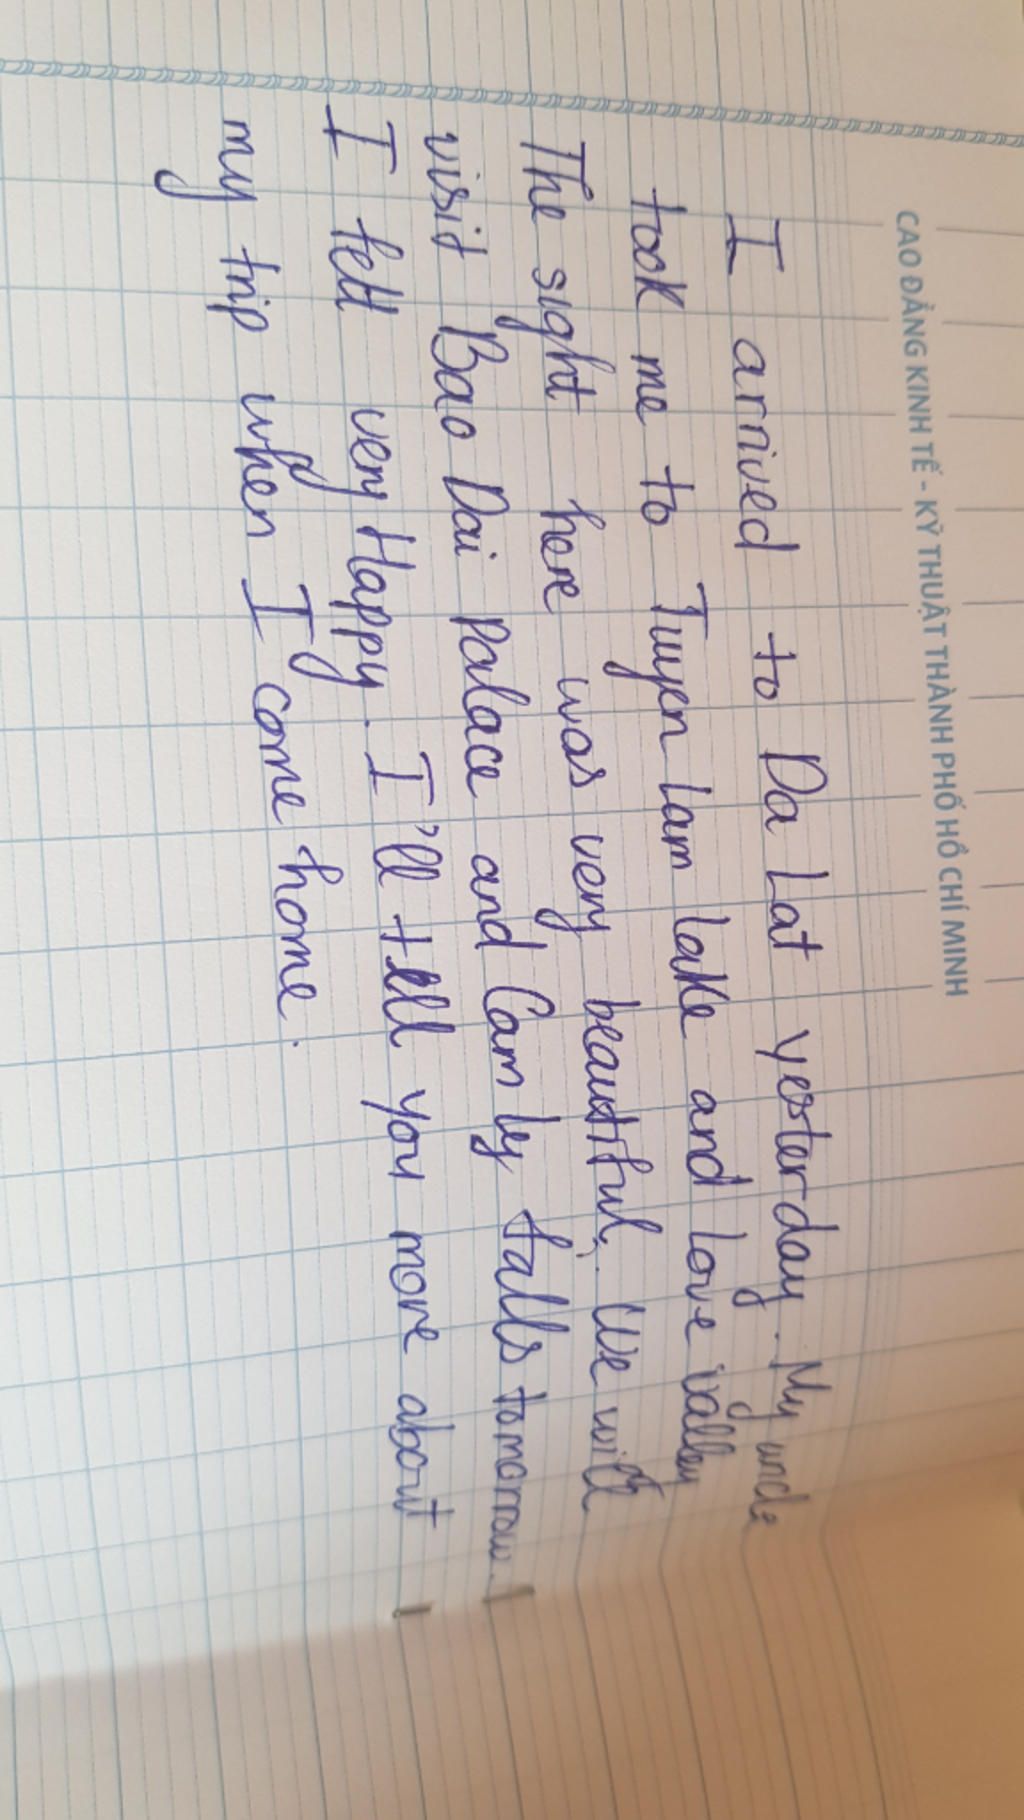 CAO ĐẲNG KINH TẾ - KỸ THUẬT THÀNH PHỐ HỒ CHÍ MINH
I arrived to Da Lat yesterday. My uncle
took me to Tuyen lam lake and love valley
The sight here was very beautiful. We will
visit Bao Dai palace and Cam ly falls tomorrow.
I felt very Happy. I'll tell you more about
my trip when I come home.